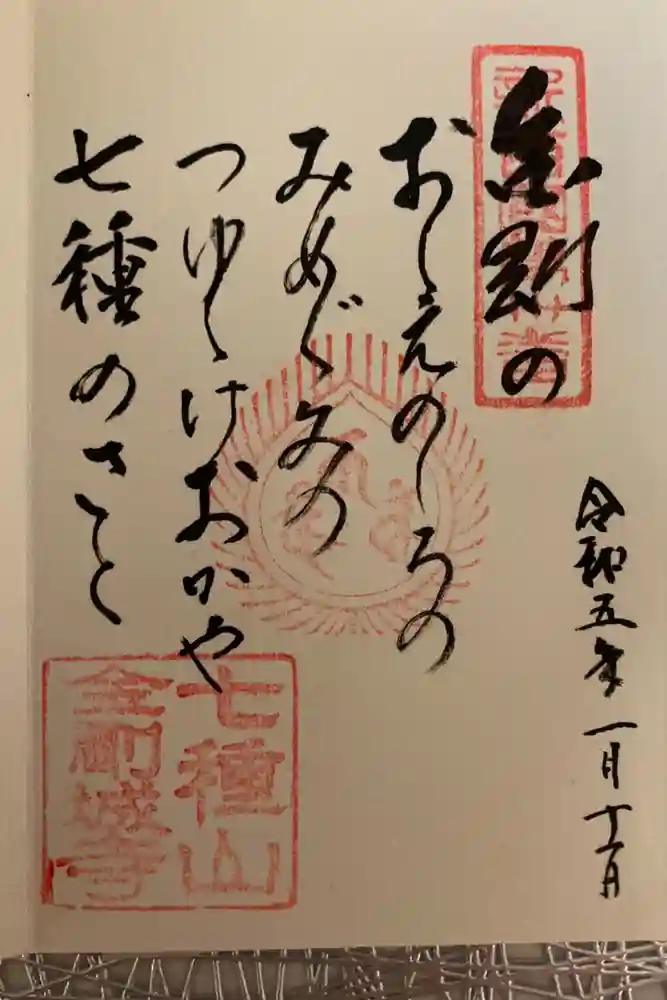 金剛の
おしえのしろの
みめぐみの
つゆ
七種のさと
令和五年一月
七種山
金剛城寺